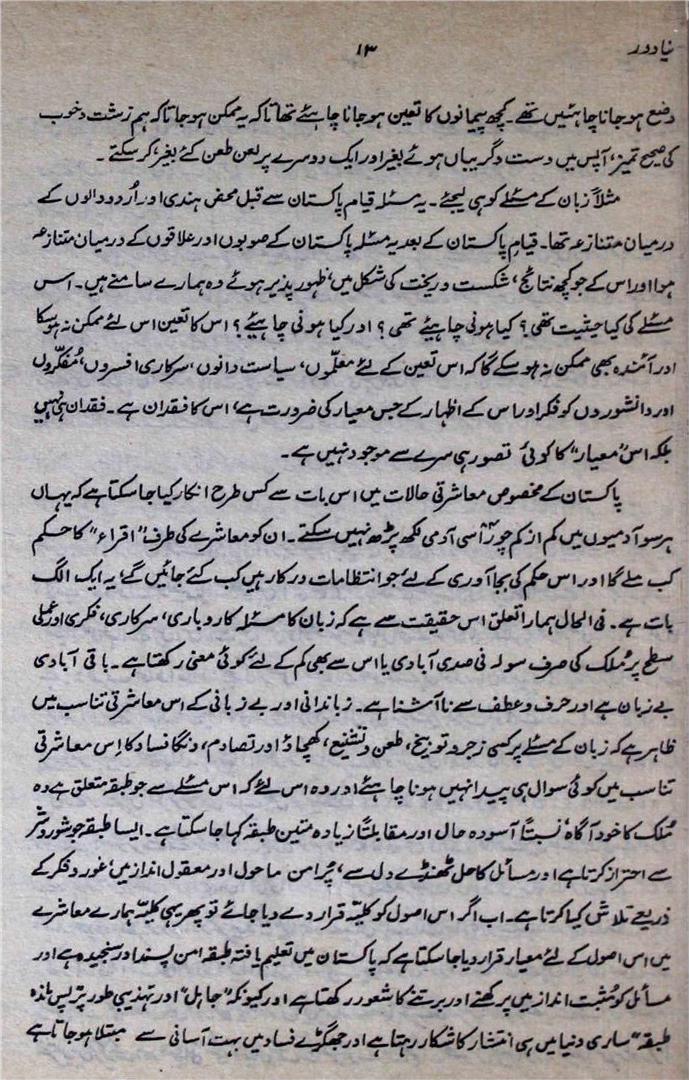 نیا دور
۱۳
وضع ہو جانا چاہئیں تھے۔ کچھ پیمانوں کا تعین ہو جانا چاہئے تھا تاکہ یہ ممکن ہو جاتا کہ ہم زشت و خوب
کی صحیح تمیز، آپس میں دست و گریباں ہوئے بغیر اور ایک دوسرے پر لعن طعن کئے بغیر، کر سکتے۔
مثلاً زبان کے مسئلے کو ہی لیجئے۔ یہ مسئلہ قیام پاکستان سے قبل محض ہندی اور اُردو والوں کے
درمیان متنازعہ تھا۔ قیام پاکستان کے بعد یہ مسئلہ پاکستان کے صوبوں اور علاقوں کے درمیان متنازعہ
ہوا اور اس کے جو کچھ نتائج، شکست و ریخت کی شکل میں، ظہور پذیر ہوئے وہ ہمارے سامنے ہیں۔ اس
مسئلے کی کیا حیثیت تھی؟ کیا ہونی چاہیئے تھی؟ اور کیا ہونی چاہیئے؟ اس کا تعین اس لئے ممکن نہ ہو سکا
اور آئندہ بھی ممکن نہ ہو سکے گا کہ اس تعین کے لئے معلّموں، سیاست دانوں، سرکاری افسروں، مُفکّروں
اور دانشوروں کو فکر اور اس کے اظہار کے جس معیار کی ضرورت ہے، اس کا فقدان ہے۔ فقدان ہی نہیں
بلکہ اس "معیار" کا کوئی تصور ہی سرے سے موجود نہیں ہے۔
پاکستان کے مخصوص معاشرتی حالات میں اس بات سے کس طرح انکار کیا جا سکتا ہے کہ یہاں
ہر سو آدمیوں میں کم از کم چوراسی آدمی لکھ پڑھ نہیں سکتے۔ ان کو معاشرے کی طرف "اقراء" کا حکم
کب ملے گا اور اس حکم کی بجا آوری کے لئے جو انتظامات درکار ہیں کب کئے جائیں گے، یہ ایک الگ
بات ہے۔ فی الحال ہمارا تعلق اس حقیقت سے ہے کہ زبان کا مسئلہ کاروباری، سرکاری، فکری اور عملی
سطح پر مُلک کی صرف سولہ فی صدی آبادی یا اس سے بھی کم کے لئے کوئی معنی رکھتا ہے۔ باقی آبادی
بے زبان ہے اور حرف و عطف سے نا آشنا ہے۔ زباندانی اور بے زبانی کے اس معاشرتی تناسب میں
ظاہر ہے کہ زبان کے مسئلے پر کسی زجر و توبیخ، طعن و تشنیع، کھچاؤ اور تصادم، دنگا فساد کا اِس معاشرتی
تناسب میں کوئی سوال ہی پیدا نہیں ہونا چاہئے اور وہ اس لئے کہ اس مسئلے سے جو طبقہ متعلق ہے وہ
مُلک کا خود آگاہ، نسبتاً آسودہ حال اور مقابلتاً زیادہ متین طبقہ کہا جا سکتا ہے۔ ایسا طبقہ جو شور و شر
سے احتراز کرتا ہے اور مسائل کا حل ٹھنڈے دل سے، پُر امن ماحول اور معقول انداز میں، غور و فکر کے
ذریعے تلاش کیا کرتا ہے۔ اب اگر اس اصول کو کلیہ قرار دے دیا جائے تو پھر یہی کلیّہ ہمارے معاشرے
میں اس اصول کے لئے معیار قرار دیا جا سکتا ہے کہ پاکستان میں تعلیم یافتہ طبقہ امن پسند اور سنجیدہ ہے اور
مسائل کو مُثبت انداز میں پرکھنے اور برتنے کا شعور رکھتا ہے اور کیونکہ "جاہل" اور تہذیبی طور پر پس ماندہ
طبقہ" ساری دنیا میں ہی انتشار کا شکار رہتا ہے اور جھگڑے فساد میں بہت آسانی سے مبتلا ہو جاتا ہے